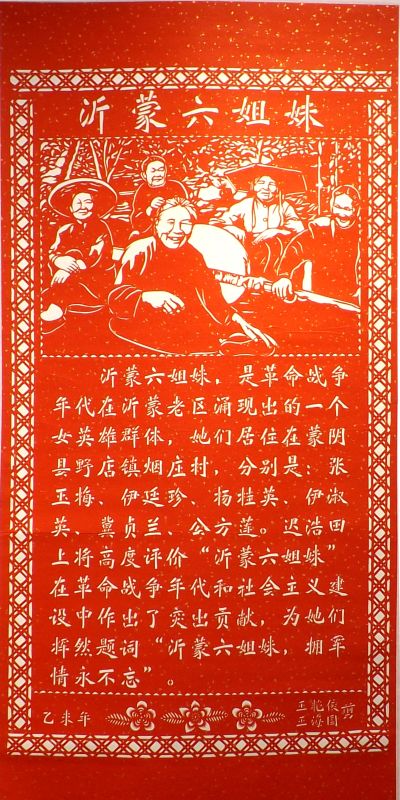 沂蒙六姐妹
沂蒙六姐妹，是革命战争
年代在沂蒙老区涌现出的一个
女英雄群体，她们居住在蒙阴
县野店镇烟庄村，分别是：张
玉梅、伊廷珍、杨桂英、伊淑
英、冀贞兰、公方莲。迟浩田
上将高度评价“沂蒙六姐妹”
在革命战争年代和社会主义建
设中作出了突出贡献，为她们
挥然题词“沂蒙六姐妹，拥军
情永不忘”。
乙未年